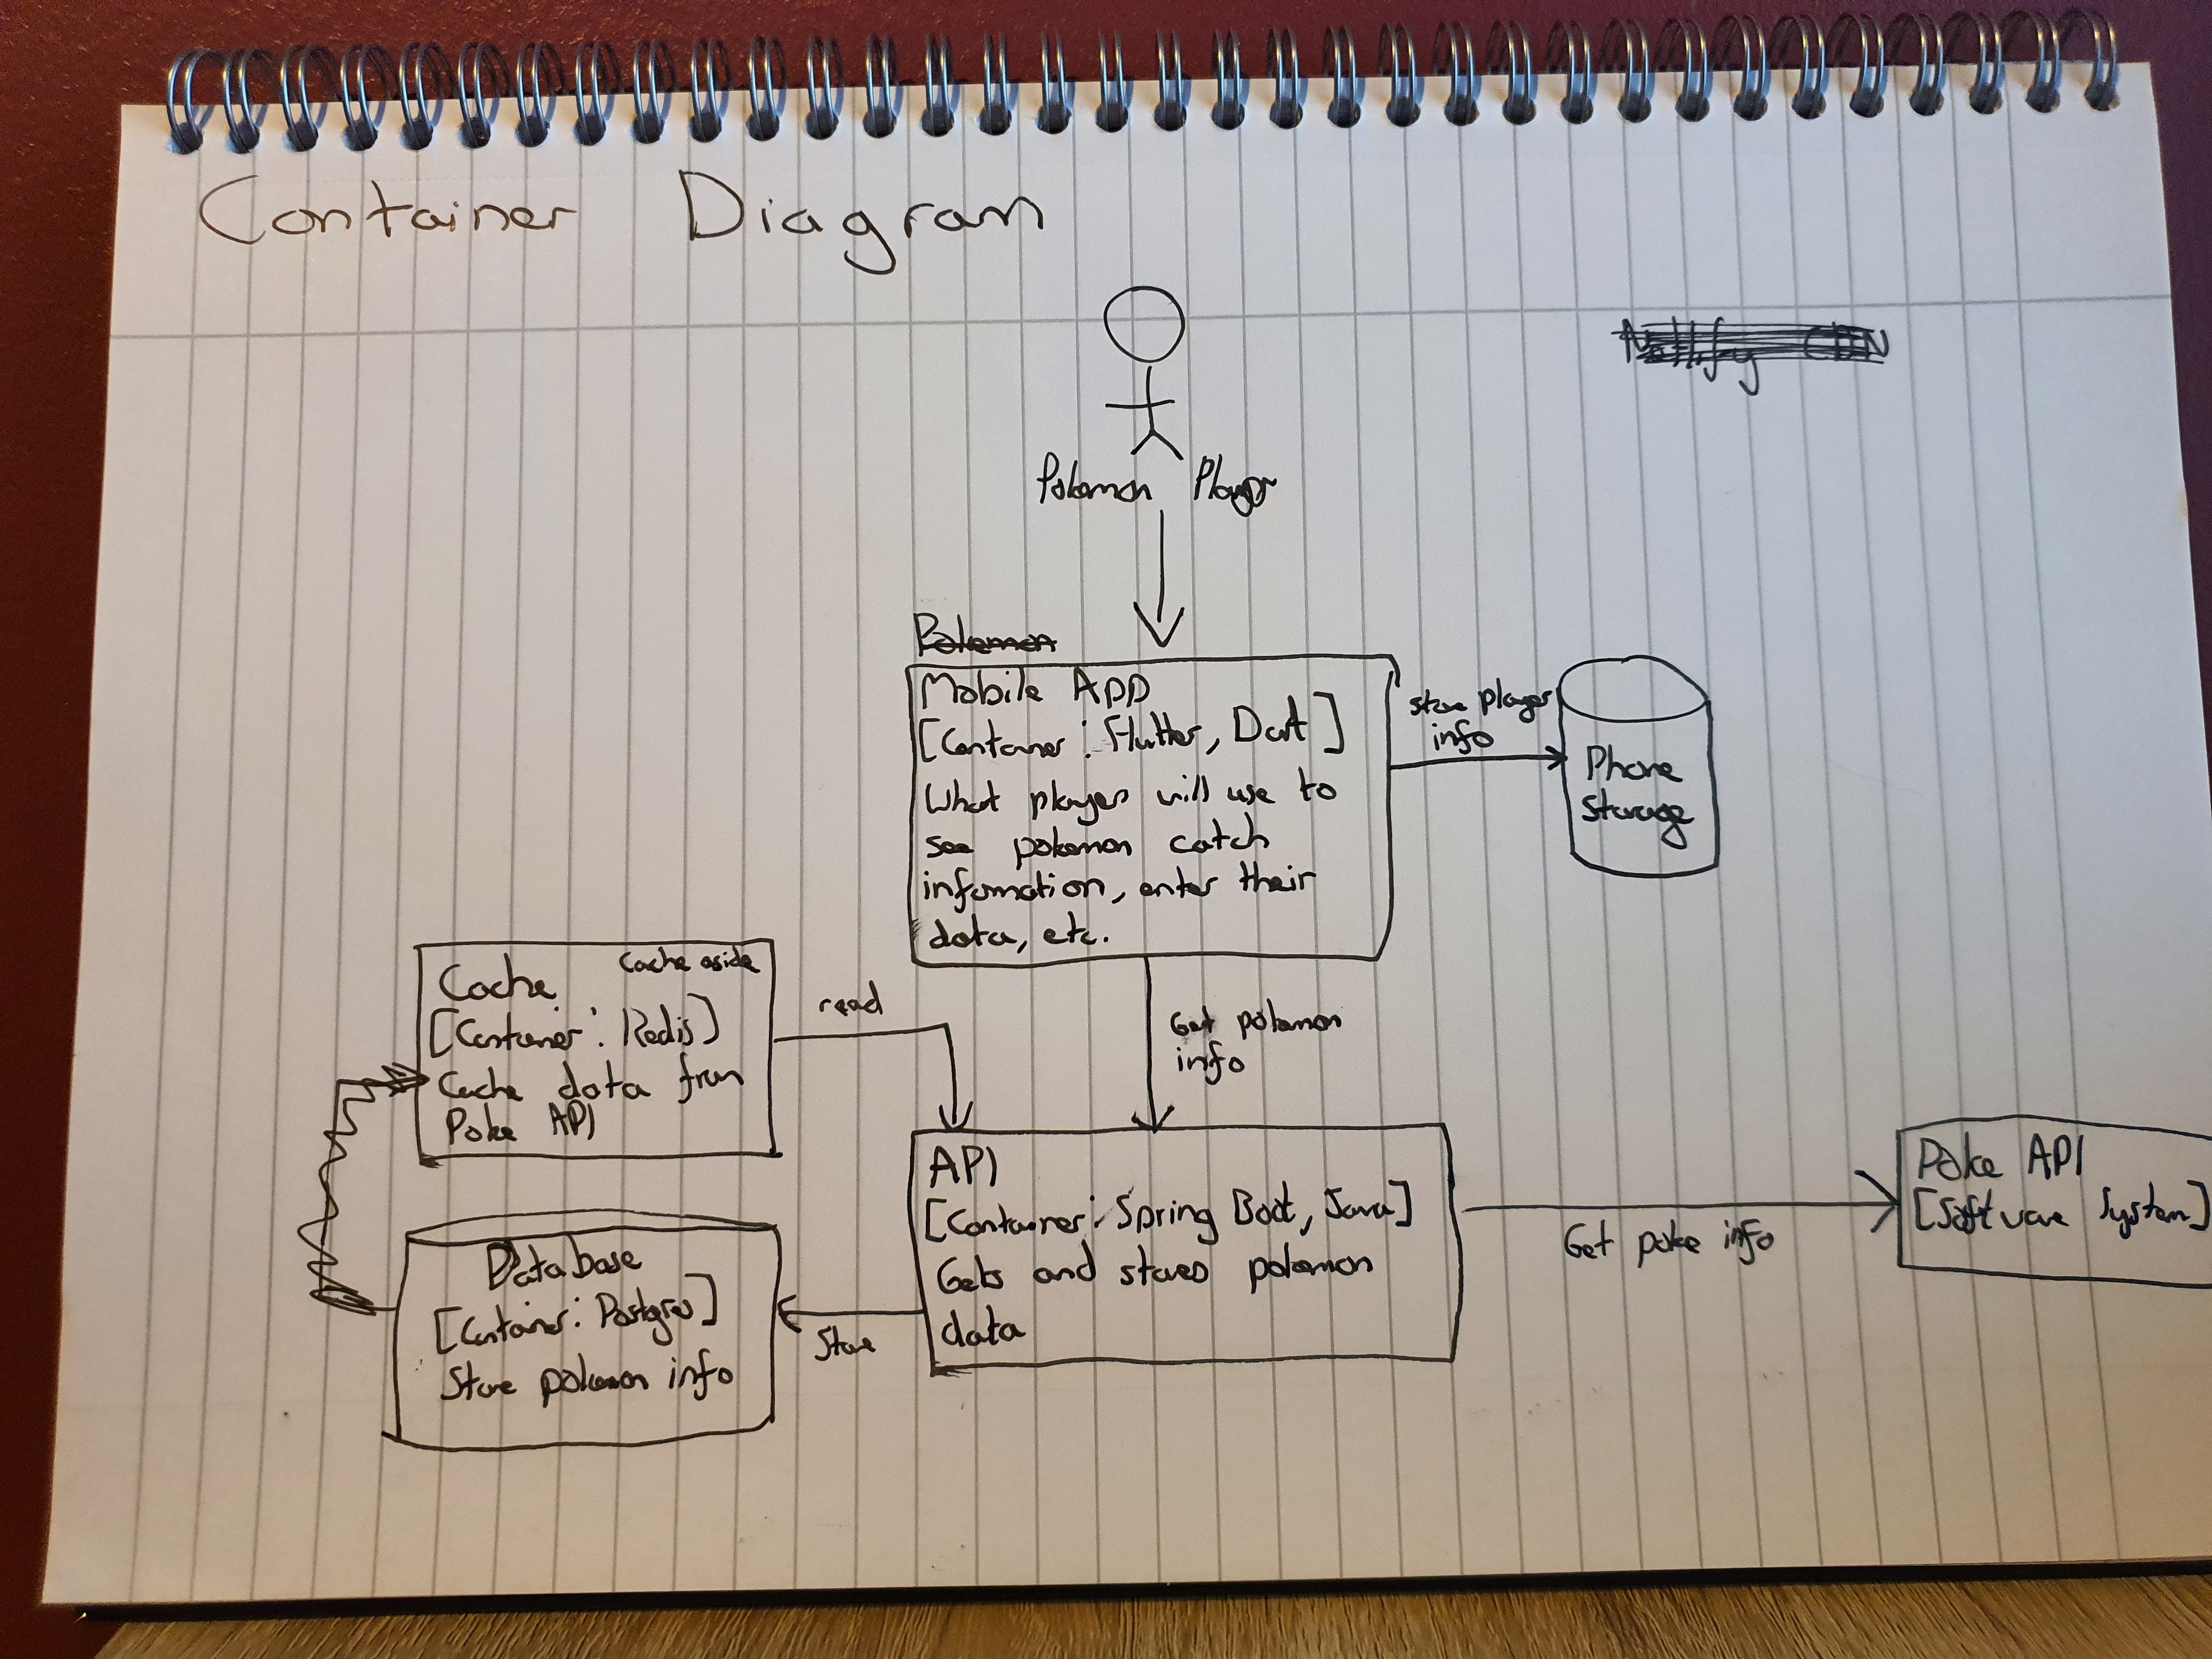 Container Diagram
Netlify CDN
Pokemon Player
Pokemon
Mobile App
[Container: Flutter, Dart]
What players will use to
see pokemon catch
information, enter their
data, etc.
store player
info
Phone
Storage
Cache aside
Cache
[Container: Redis]
Cache data from
Poke API
read
Get pokemon
info
API
[Container: Spring Boot, Java]
Gets and stores pokemon
data
Get poke info
Poke API
[Software System]
Store
Database
[Container: Postgres]
Store pokemon info